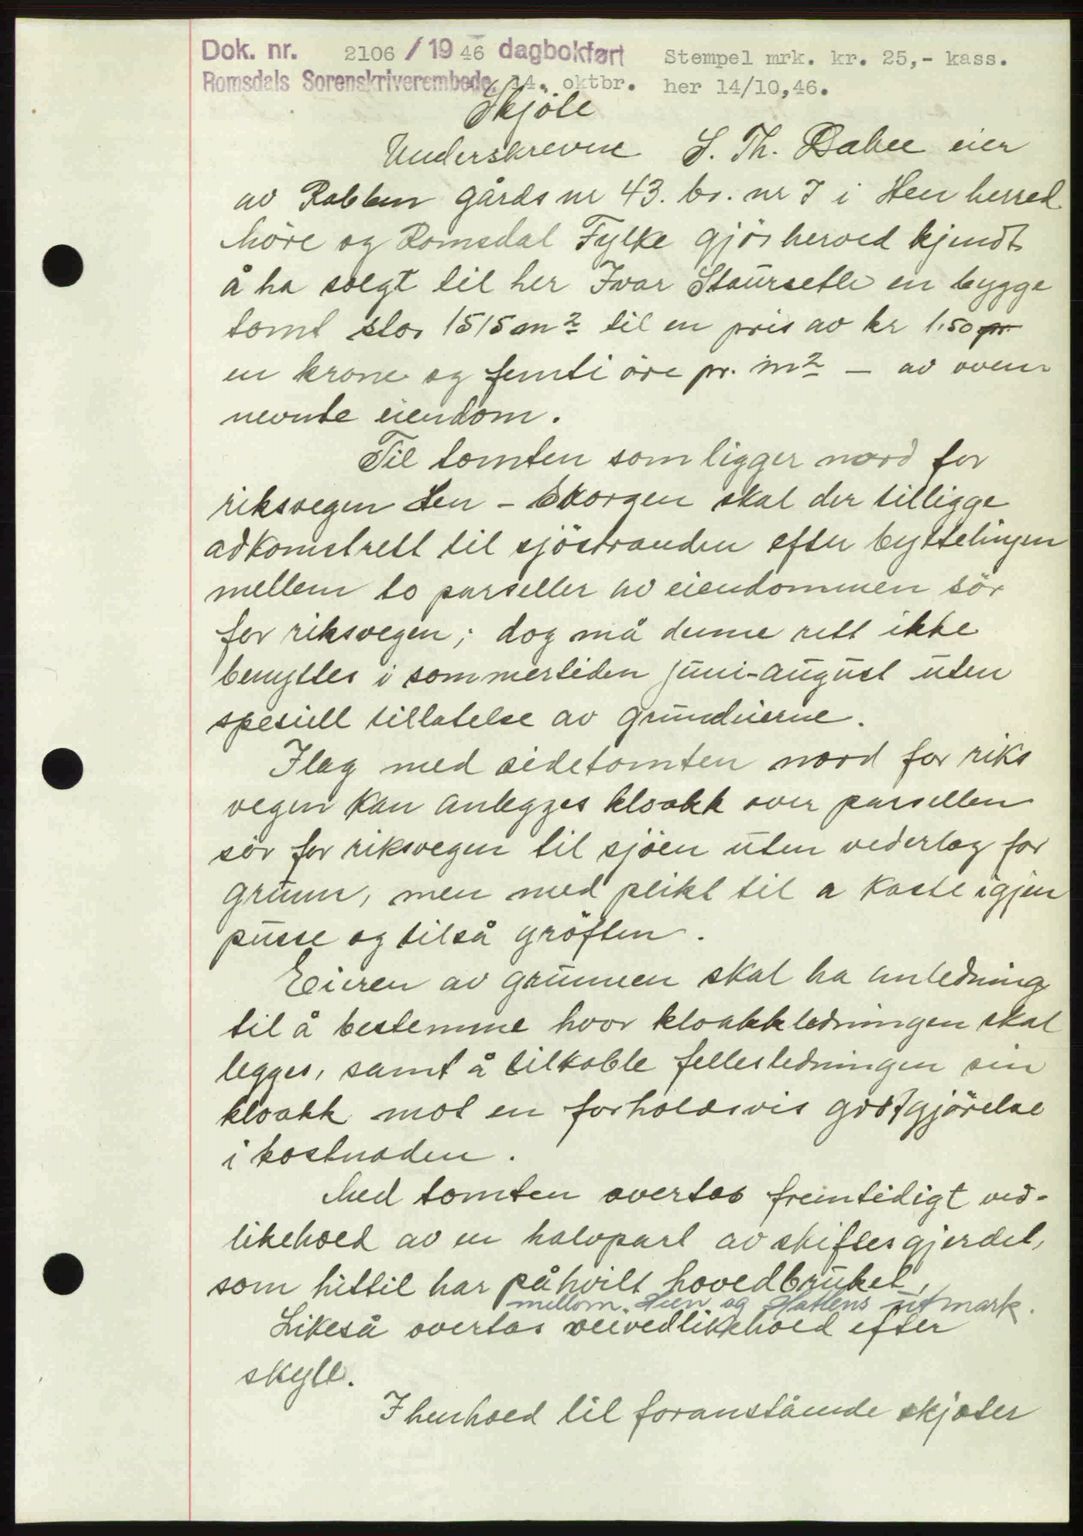 Dok. nr. 2106 / 19 46 dagbokført Stempel mrk. kr. 25,- kass.
Romsdals Sorenskriverembede, 14. oktbr. her 14/10,46.
Skjöte
Underskrevne S. Th. Dahle eier
av Rabben gårdsnr 43. br. nr 7 i Hen herred
Möre og Romsdal Fylke gjör herved kjendt
å ha solgt til her Ivar Staurseth en bygge
tomt stor 1515 m² til en pris av kr 1.50 pr
en krone og femti öre pr. m² – av oven-
nevnte eiendom.
Til tomten som ligger nord for
riksvegen Hen – Skorgen skal der tilligge
adkomstrett til sjöstranden efter byttelinjen
mellem to parseller av eiendommen sör
for riksvegen; dog må denne rett ikke
benyttes i sommertiden juni-august uten
spesiell tillatelse av grundeierne.
I lag med sidetomten nord for riks
vegen kan anlegges kloakk over parsellen
sör for riksvegen til sjöen uten vederlag for
grunn, men med plikt til a kaste igjen
pusse og tilså gröften.
Eieren av grunnen skal ha anledning
til å bestemme hvor kloakkledningen skal
legges, samt å tilkoble fellesledningen sin
kloakk mot en forholdsvis godtgjörelse
i kostnaden.
Med tomten overtas fremtidigt ved-
likehold av en halvpart av skiftesgjerdet,
som hittil har påhvilt hovedbruket,
mellom Hen og Hatlens utmark.
Likeså overtas veivedlikehold efter
skyld.
I henhold til foranstående skjöter